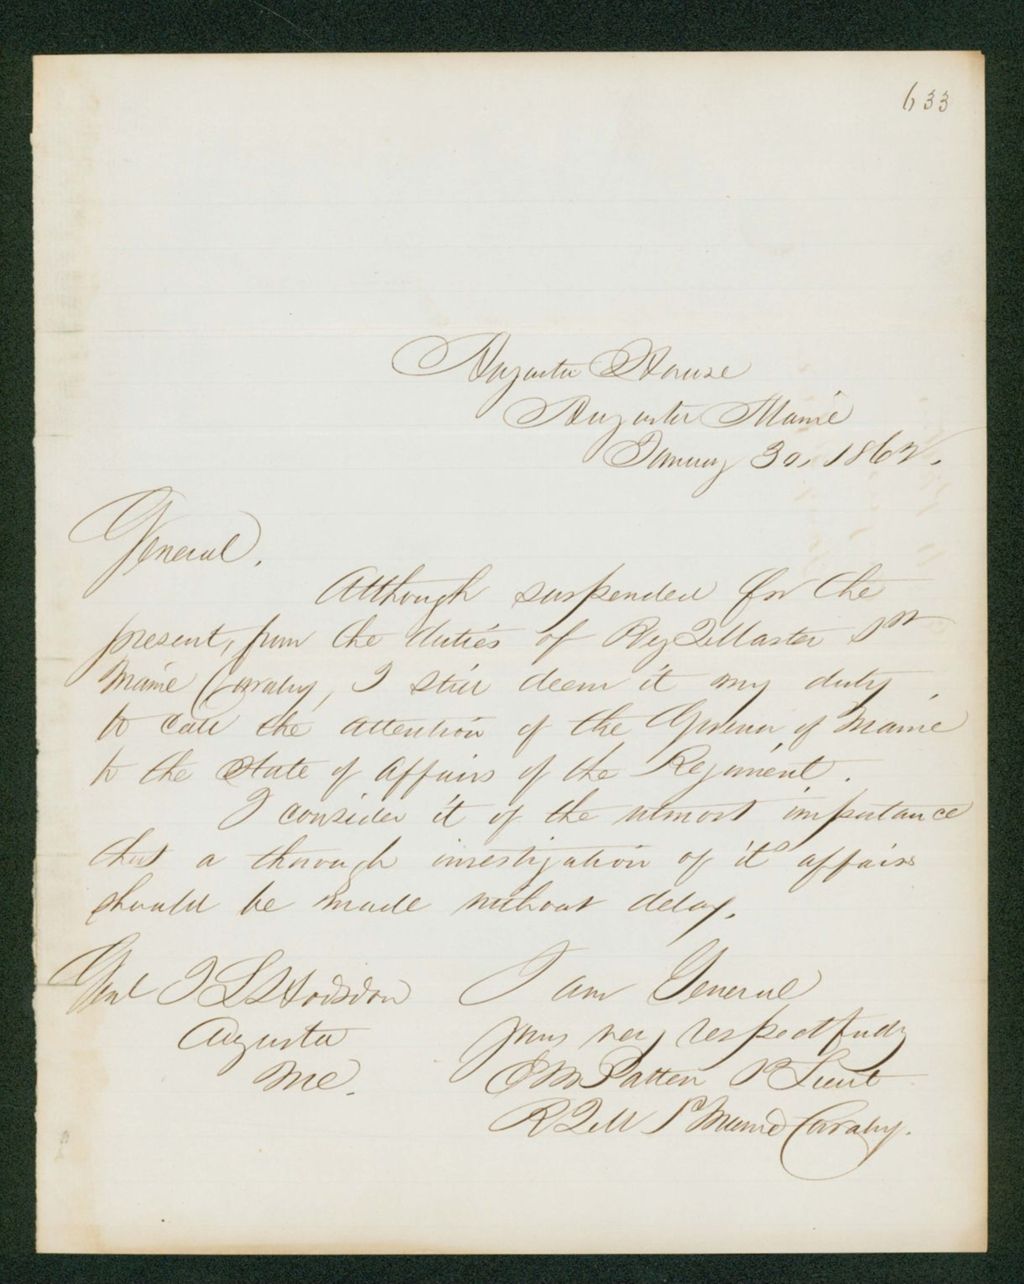 633
Augusta House
Augusta Maine
January 30, 1862.
General,
Although suspended for the
present, from the duties of Reg QrMaster 1st
Maine Cavalry, I still deem it my duty,
to call the attention of the Governor of Maine
to the State of Affairs of the Regiment.
I consider it of the utmost importance
that a thorough investigation of its affairs
should be made without delay.
I am General
your very respectfully
E M Patten 1st Lieut
R Q M 1st Maine Cavalry.
Genl J L Hodsdon
Augusta
Me.